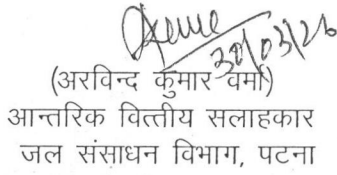 30/03/26
(अरविन्द कुमार वर्मा)
आन्तरिक वित्तीय सलाहकार
जल संसाधन विभाग, पटना